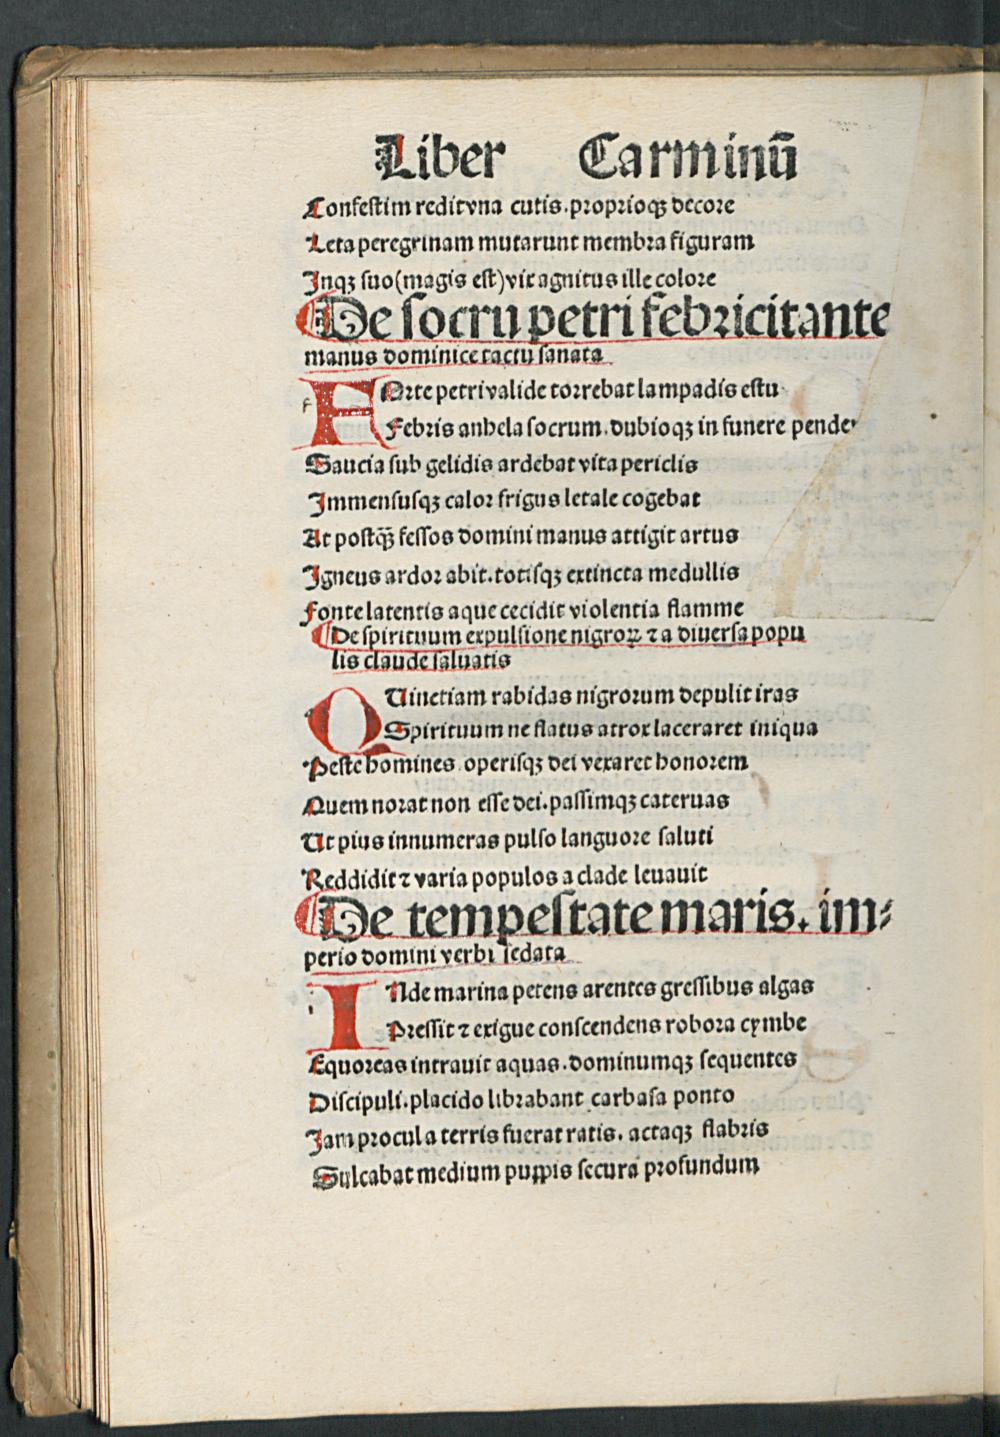 Liber Carminū
Confestim reditvna cutis.proprioqȝ decore
Leta peregrinam mutarunt membra figuram
Inqȝ suo(magis est)vix agnitus ille colore
De socru petri febricitante
manus dominice tactu sanata
FOrte petri valide torrebat lampadis estu
Febris anhela socrum.dubioqȝ in funere pende
Saucia sub gelidis ardebat vita periclis
Immensusqȝ calor frigus letale cogebat
At postq̄ȝ fessos domini manus attigit artus
Igneus ardor abit.totisqȝ extincta medullis
Fonte latentis aque cecidit violentia flamme
De spirituum expulsione nigroꝝ ⁊ a diuersa popu
lis claude saluatis
QUinetiam rabidas nigrorum depulit iras
Spirituum ne flatus atrox laceraret iniqua
Peste homines operisqȝ dei vexaret honorem
Quem norat non esse dei.passimqȝ cateruas
Ut pius innumeras pulso languore saluti
Reddidit ⁊ varia populos a clade leuauit
De tempestate maris. im⸗
perio domini verbi sedata
INde marina petens arentes gressibus algas
Pressit ⁊ exigue conscendens robora cymbe
Equoreas intrauit aquas.dominumqȝ sequentes
Discipuli.placido librabant carbasa ponto
Jam procul a terris fuerat ratis. actaqȝ flabris
Sulcabat medium puppis secura profundum